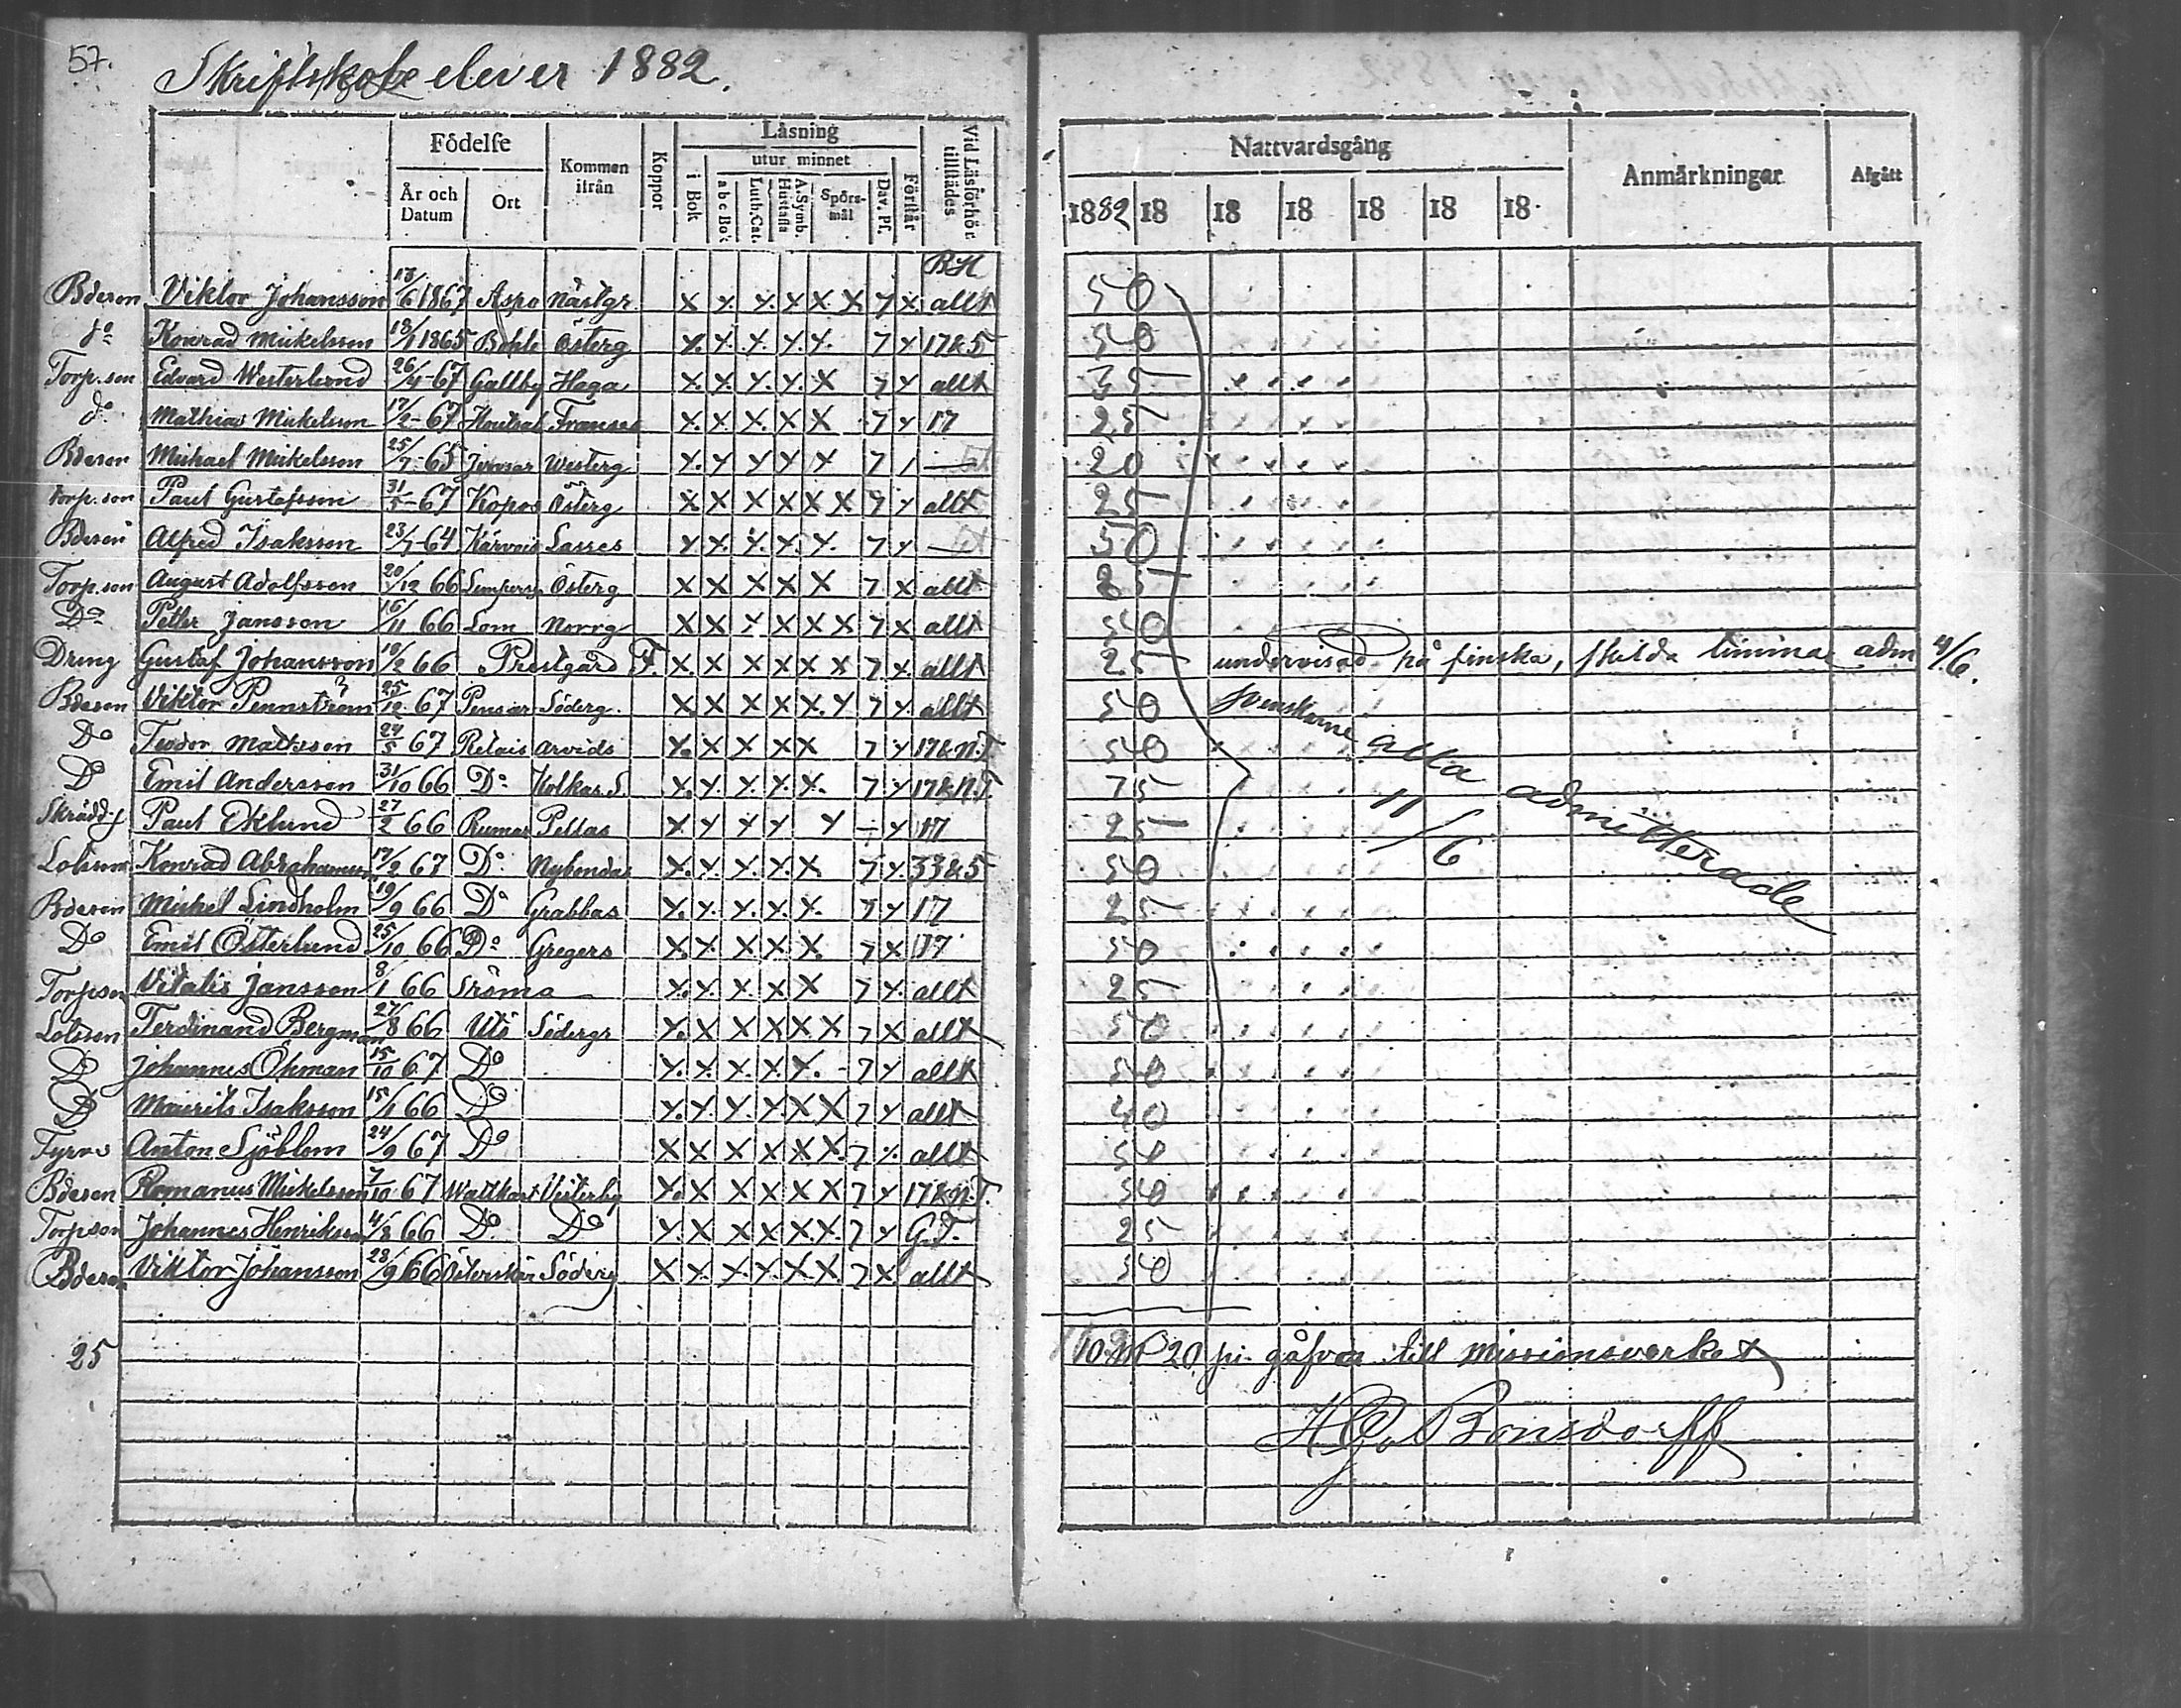 57.
Skriftskole elever 1882.
Födelse Kommen ifrån Koppor Läsning Vid Läsförhör tillstädes
År och Datum Ort i Bok utur minnet Förstår
a b c Bok Luth. Cat. Hustafla A. Symb. Spörsmål Dav. Ps.
Nattvardsgång Anmärkningar Afgått
1882 18 18 18 18 18 18
B H
Bdeson Viktor Johansson 13/6 1867 Aspo Nästgr. x x x x x x 7 x allt 50
do Konrad Mickelsson 13/1 1865 Bohle Österg x x x x x 7 x 17&5 50
Torp.son Edvard Westerlund 26/4 -67 Gallby Haga x x x x x 7 x allt 35
do Mathias Mickelsson 17/2 -67 Houtsal Franses x x x x x 7 x 17 25
Bdeson Michael Mickelsson 25/7 -65 Jervsar Westerg x x x x x 7 / — 20
Torp.son Paul Gustafsson 31/5 -67 Kopos Österg x x x x x x 7 x allt 25
Bdeson Alfred Isaksson 23/7 -64 Kärvois Lasses x x x x x 7 x — 50
Torp.son August Adolfsson 20/12 66 Lempersg Österg x x x x x 7 x allt 25
Do Petter Jansson 16/11 66 Lom Norrg x x x x x x 7 x allt 50
Dreng Gustaf Johansson 10/2 66 Prestgård F. x x x x x x 7 x allt 25 undervisad på finska, skilda timmar adm 4/6.
Bdeson Viktor Pennström 25/12 67 Pensar Söderg. x x x x x x 7 x allt 50 svenskarne alla admitterade 11/6
Do Teodor Matsson 24/5 67 Retais Arvids x x x x x 7 x 17&N.T. 50
Do Emil Andersson 31/10 66 Do Kolkas S. x x x x x 7 x 17&N.T. 75
Paul Eklund 27/2 66 Rumar Pellas x x x x x — x 17 25
Lotsson Konrad Abrahamsson 17/2 67 Do Nybondas x x x x x 7 x 33&5 50
Bdeson Mickel Lindholm 19/9 66 Do Grabbas x x x x x 7 x 17 25
Do Emil Österlund 25/10 66 Do Gregers x x x x x 7 x 17 50
Torpson Vitalis Jansson 8/1 66 Sröma x x x x x 7 x allt 25
Lotsson Ferdinand Bergman 27/8 66 Utö Södergr x x x x x x 7 x allt 50
Do Johannes Öhman 15/10 67 Do x x x x x 7 x allt 50
Do Maurits Isaksson 15/1 66 Do x x x x x x 7 x allt 40
Fyrvs Anton Sjöblom 24/9 67 Do x x x x x x 7 x allt 50
Bdeson Romanus Mickelsson 7/10 67 Wattkast Vesterby x x x x x x 7 x 17&N.T. 50
Torpson Johannes Henriksson 4/8 66 Do Do x x x x x x 7 x G.T. 25
Bdeson Viktor Johansson 28/9 66 Österskär Söderg x x x x x x 7 x allt 50
25
10 m 20 pi gåfvor till missionsverket
H G v Bonsdorff